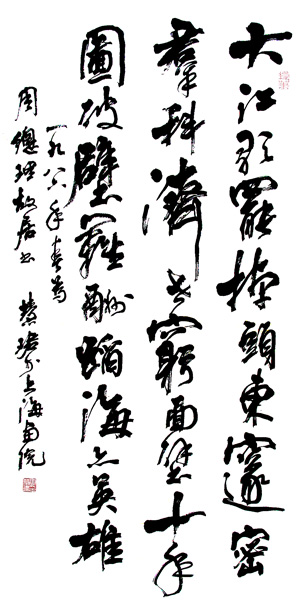 大江歌罷掉頭東邃密
羣科濟世窮面壁十年
圖破壁難酬蹈海亦英雄
一九八六年春為
周總理故居書 慧珺於上海畫院